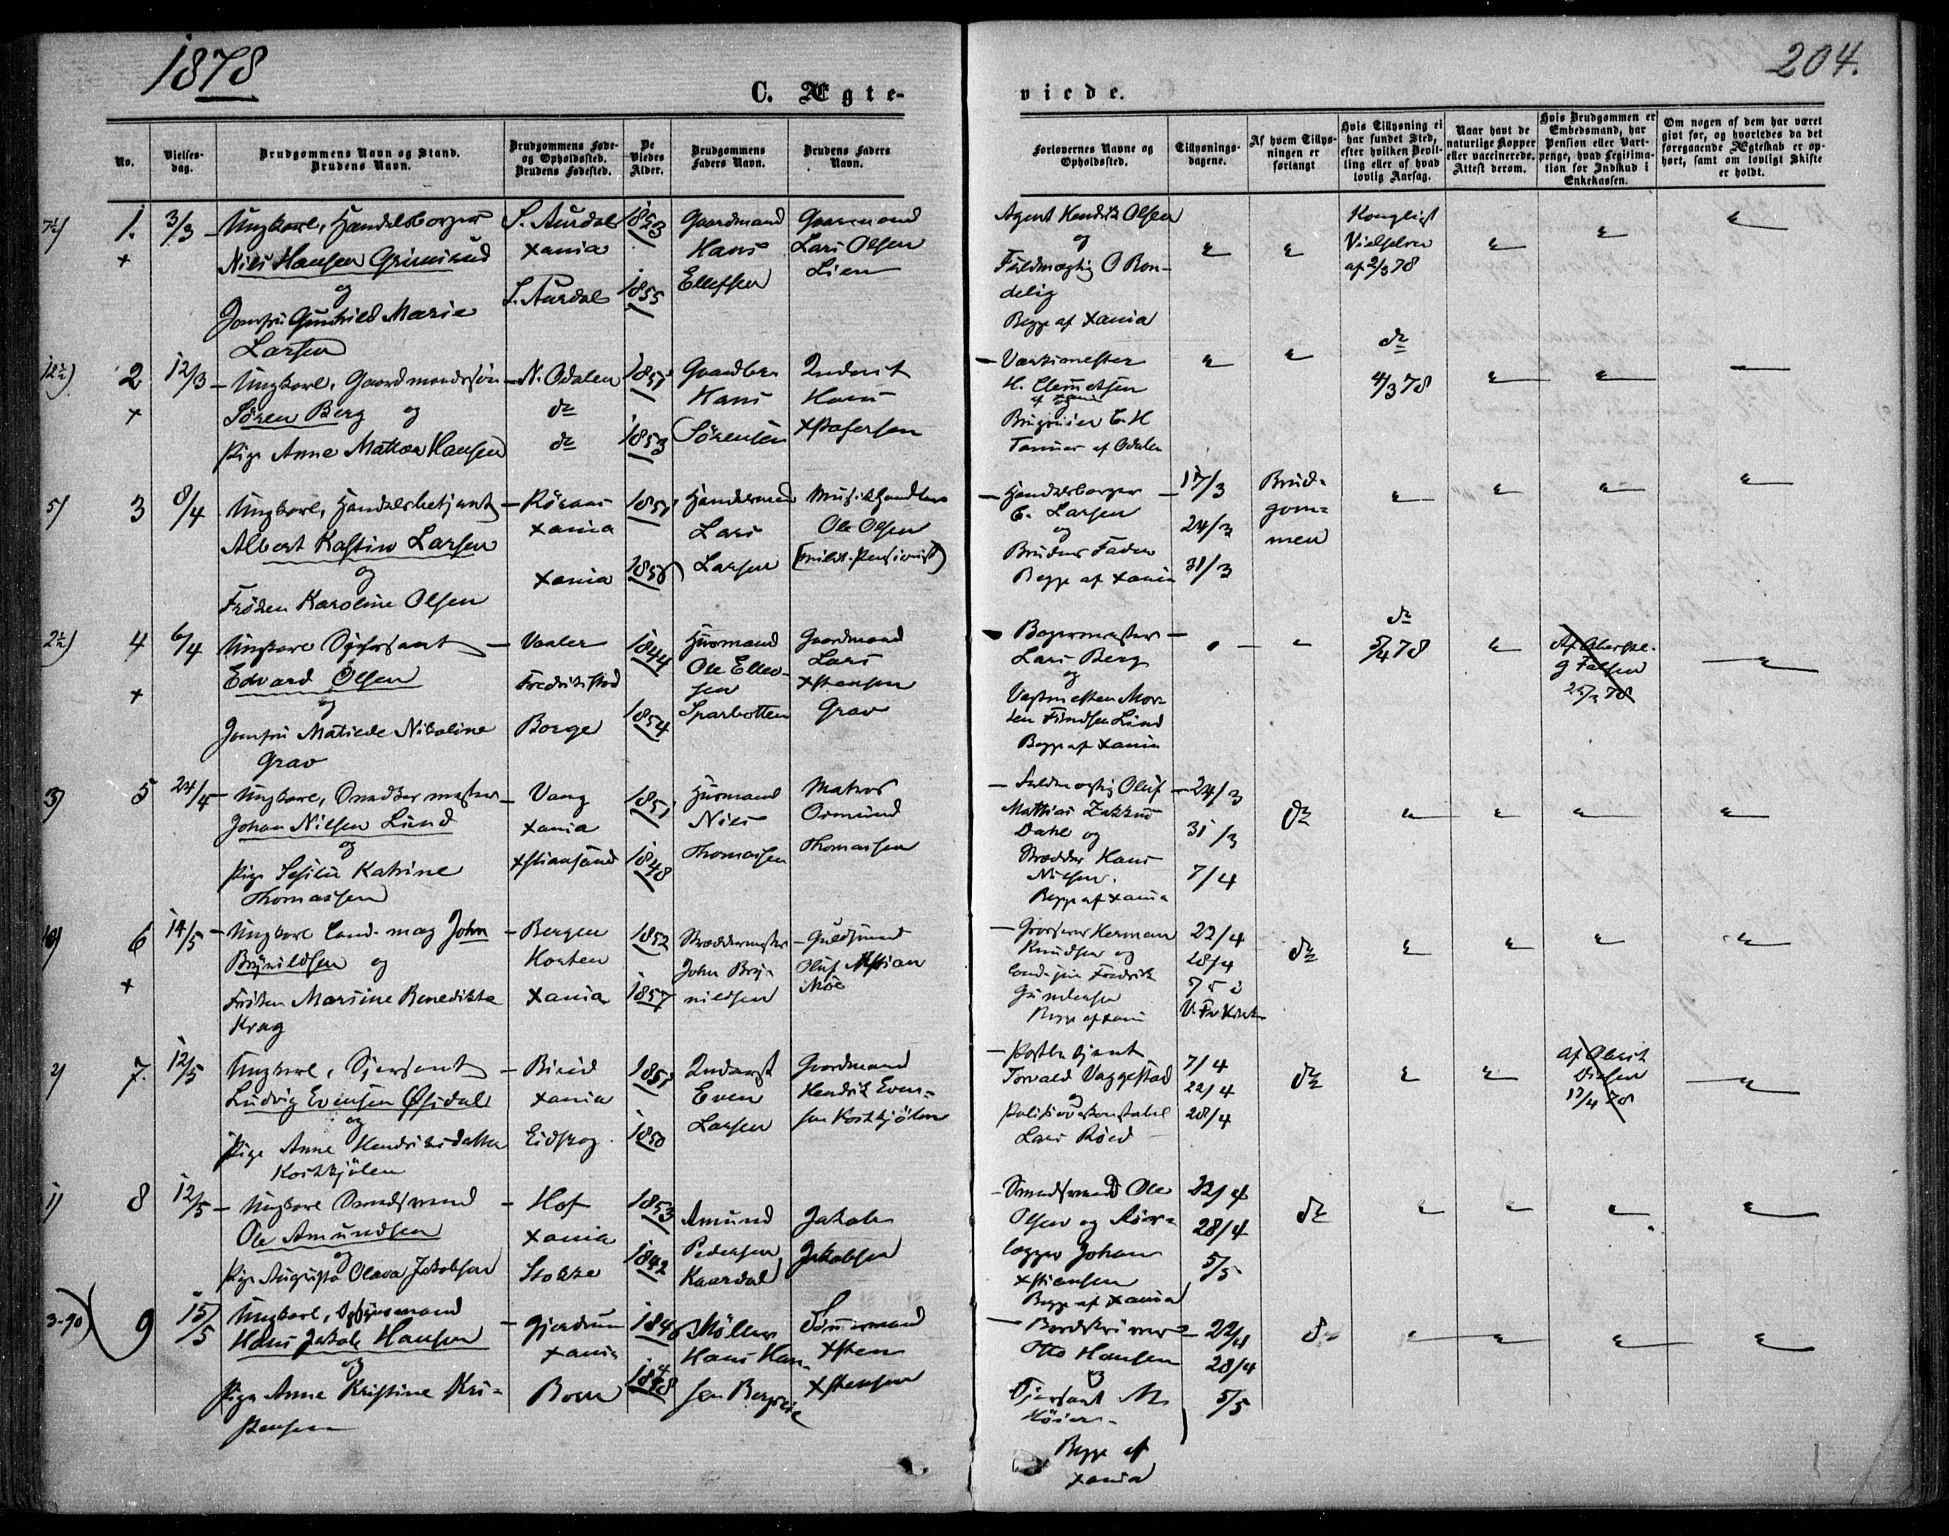 1878
204.
C. Ægte-
viede.
No.
Vielses-
dag.
Brudgommens Navn og Stand.
Brudens Navn.
Brudgommens Føde-
og Opholdssted.
Brudens Fødested.
De
Viedes
Alder.
Brudgommens
Faders Navn.
Brudens Faders
Navn.
Forlovernes Navne og
Opholdssted.
Tillysnings-
dagene.
Af hvem Tillys-
ningen er
forlangt
Hvis Tillysning ei
har fundet Sted,
efter hvilken Bevil-
ling eller af hvad
lovlig Aarsag.
Naar havt de
naturlige Kopper
eller vaccinerede.
Attest derom.
Hvis Brudgommen er
Embedsmand, har
Pension eller Vart-
penge, hvad Legitima-
tion for Indskud i
Enkekassen.
Om nogen af dem har været
givt før, og hvorledes da det
foregaaende Ægteskab er op-
hørt, samt om lovligt Skifte
er holdt.
1. 3/3 Ungkarl, Handelsborger
Niels Hansen Grimsrud
og
Jomfru Gunhild Marie
Larsen
S. Aurdal
Xania
S. Aurdal
1853
1855
Gaardmand
Hans
Ellefsen
Gaardmand
Lars Olsen
Lien
Agent Hendrik Olsen
og
Fuldmægtig O Ron-
delig
Begge af Xania
Kongligt
af 2/3 78
2 12/3 Ungkarl, Gaardmandssøn
Søren Berg og
Pige Anne Mathea Hansen
N. Odalen
do
do
1851
1853
Hans
Sørensen
Inderst
Hans
Xstofersen
Værkmester
H. Clemetsen
C. H
af Odalen
do
4/3 78
3 8/4 Ungkarl, Handelsbetjent
Albert Kastin Larsen
og
Frøken Karoline Olsen
Røraas
Xania
Xania
1851
1856
Handelsmand
Lars
Larsen
Musikhandler
Ole Olsen
(milit. Pensionist)
Handelsborger
C. Larsen
og
Brudens Fader
Begge af Xania
17/3
24/3
31/3
Brud-
gom-
men
4 6/4 Ungkarl Sjersant
Edvard Olsen
og
Jomfru Matilde Nikoline
Grav
Vaaler
Fredrikstad
Borge
1844
1854
Husmand
Ole Ellev-
sen
Sparbotten
Gaardmand
Lars
Xstensen
Grav
Bagermester
Lars Berg
og
Lund
Begge af Xania
do
5/4 78
5 24/4 Ungkarl, Snedkermester
Johan Nilsen Lund
og
Pige Sesilie Katrine
Thomassen
Vang
Xania
Xstiansand
1851
1848
Husmand
Nils
Thomassen
Matros
Osmund
Thomassen
Fuldmægtig Oluf
Mathias
Dahl og
Skrædder Hans
Nilsen.
Begge af Xania
24/3
31/3
7/4
do
6 14/5 Ungkarl Cand. mag John
Brynildsen og
Frøken Marsine Benedikte
Krag
Bergen
Horten
Xania
1852
1857
Skræddermester
John Bry-
nildsen
Guldsmed
Oluf Kristian
Moe
Grosserer Herman
Knudsen og
Fredrik
Gundersen
22/4
28/4
do
7. 12/5 Ungkarl, Sjersant
Ludvig Evensen Øfsdal
og
Pige Anne Hendriksdatter
Kostkjølen
Birid
Xania
Eidskog
1851
1850
Inderst
Even
Larsen
Gaardmand
Hendrik Even-
sen Kostkjølen
Postbetjent
Torvald Vaggestad
og
Politiovekonstabel
Lars Røed
7/4
22/4
28/4
do
8 12/5 Ungkarl Smedsvend
Ole Amundsen
og
Pige Augusta Olava Jakobsen
Hof
Xania
Stokke
1853
1842
Amund
Pedersen
Kaardal
Jakob
Jakobsen
Smedsvend Ole
Olsen og Rør-
lægger Johan
Xstiansen
Begge af Xania
22/4
28/4
5/5
do
9 15/5 Ungkarl,
Hans Jakob Hansen
og
Pige Anne Kristine Kri-
stensen
Gjerdrum
Xania
1846
1848
Møller
Hans Han-
sen
Tømmermand
Xsten
Xstensen
Otto Hansen
og
Sjersant M.
Begge af
Xania
22/4
28/4
5/5